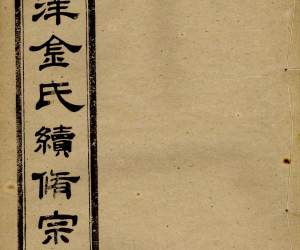 洋金氏續脩宗